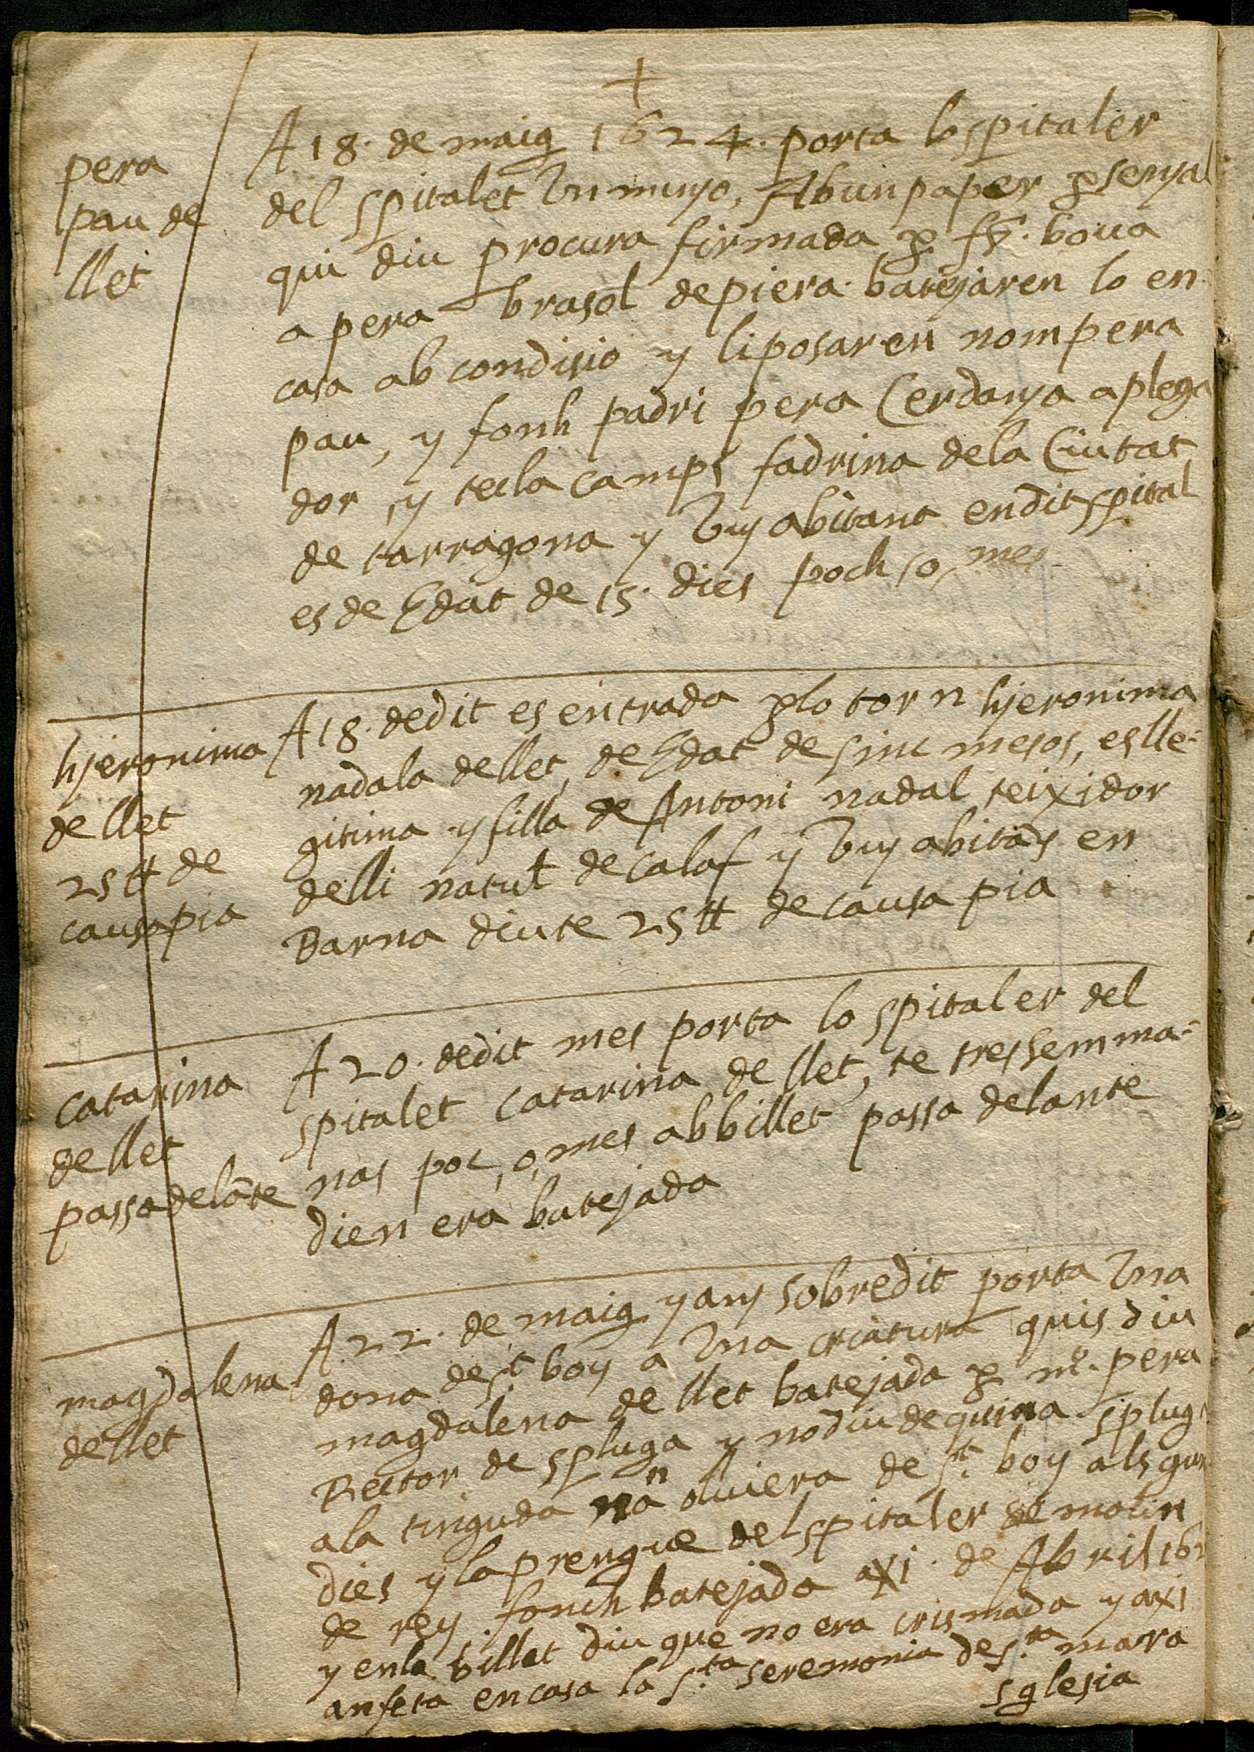 +
pera
pau de
llet
A 18. de maig 1624. porta lospitaler
del spitalet Vn minyo, Abun paper p senyal
qui diu procura firmada p. fr. boua
a pera brasol de piera. batejaren lo en
casa ab condisio y li posaren nom pera
pau, y fonh padri pera Cerdanya aplega
dor, y tecla camps fadrina dela Ciutat
de tarragona y Vuy abitant en dit spital
es de Edat de 15. dies poch, o, mes
hjeronima
de llet
25 ll de
causa pia
A 18. dedit es entrada plo torn hjeronima
nadala de llet, de Edat de sinc mesos, es lle-
gitima y filla de Antoni nadal teixidor
de lli natul de Calaf y Vuy abitas en
Barna diu te 25 ll de causa pia
catarina
de llet
passa delāte
A 20. dedit mes porta lo spitaler del
spitalet Catarina de llet, te tres semma-
nas poc, o, mes ab billet passa delante
dien era batejada
magdalena
de llet
A 22. de maig y any sobredit porta Vna
dona de St. boy a Vna criatura quis diu
magdalena de llet batejada p mr. pera
Rector de spluga y no diu de quina splug
a la tinguda oliuera de St. boy als
dies y la prengue del spitaler de molin
de rey. fonch batejada a xi. de Abril 162
y en la billet diu que no era crismada y axi
an feta en casa la Sta. seremonia de Sta. mara
sglesia